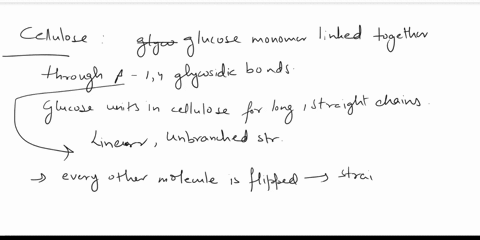 Cellulose : glyco glucose monomer linked together
through β-1,4 glycosidic bonds.
Glucose units in cellulose for long, straight chains.
Linear, unbranched str.
→ every other molecule is flipped → strai